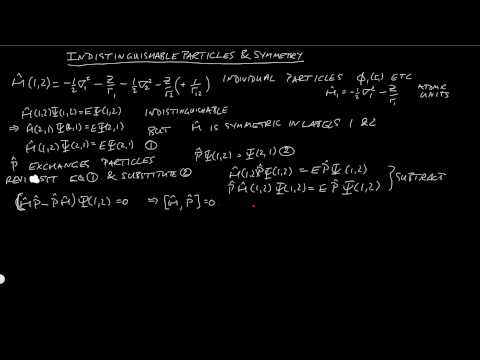 INDISTINGUISHABLE PARTICLES & SYMMETRY
Ĥ(1,2) = -½∇₁² - Z/r₁ - ½∇₂² - Z/r₂ (+ 1/r₁₂) INDIVIDUAL PARTICLES φ₁(r₁) ETC
Ĥ₁ = -½∇₁² - Z/r₁ ATOMIC UNITS
Ĥ(1,2)Ψ(1,2) = EΨ(1,2) INDISTINGUISHABLE
⇒ Ĥ(2,1)Ψ(2,1) = EΨ(2,1) BUT Ĥ IS SYMMETRIC IN LABELS 1 & 2
Ĥ(1,2)Ψ(2,1) = EΨ(2,1) ①
P̂ EXCHANGES PARTICLES P̂Ψ(1,2) = Ψ(2,1) ②
EQ ① & SUBSTITUTE ② Ĥ(1,2)P̂Ψ(1,2) = EP̂Ψ(1,2)
P̂Ĥ(1,2)Ψ(1,2) = EP̂Ψ(1,2) } SUBTRACT
(ĤP̂ - P̂Ĥ)Ψ(1,2) = 0 ⇒ [Ĥ, P̂] = 0